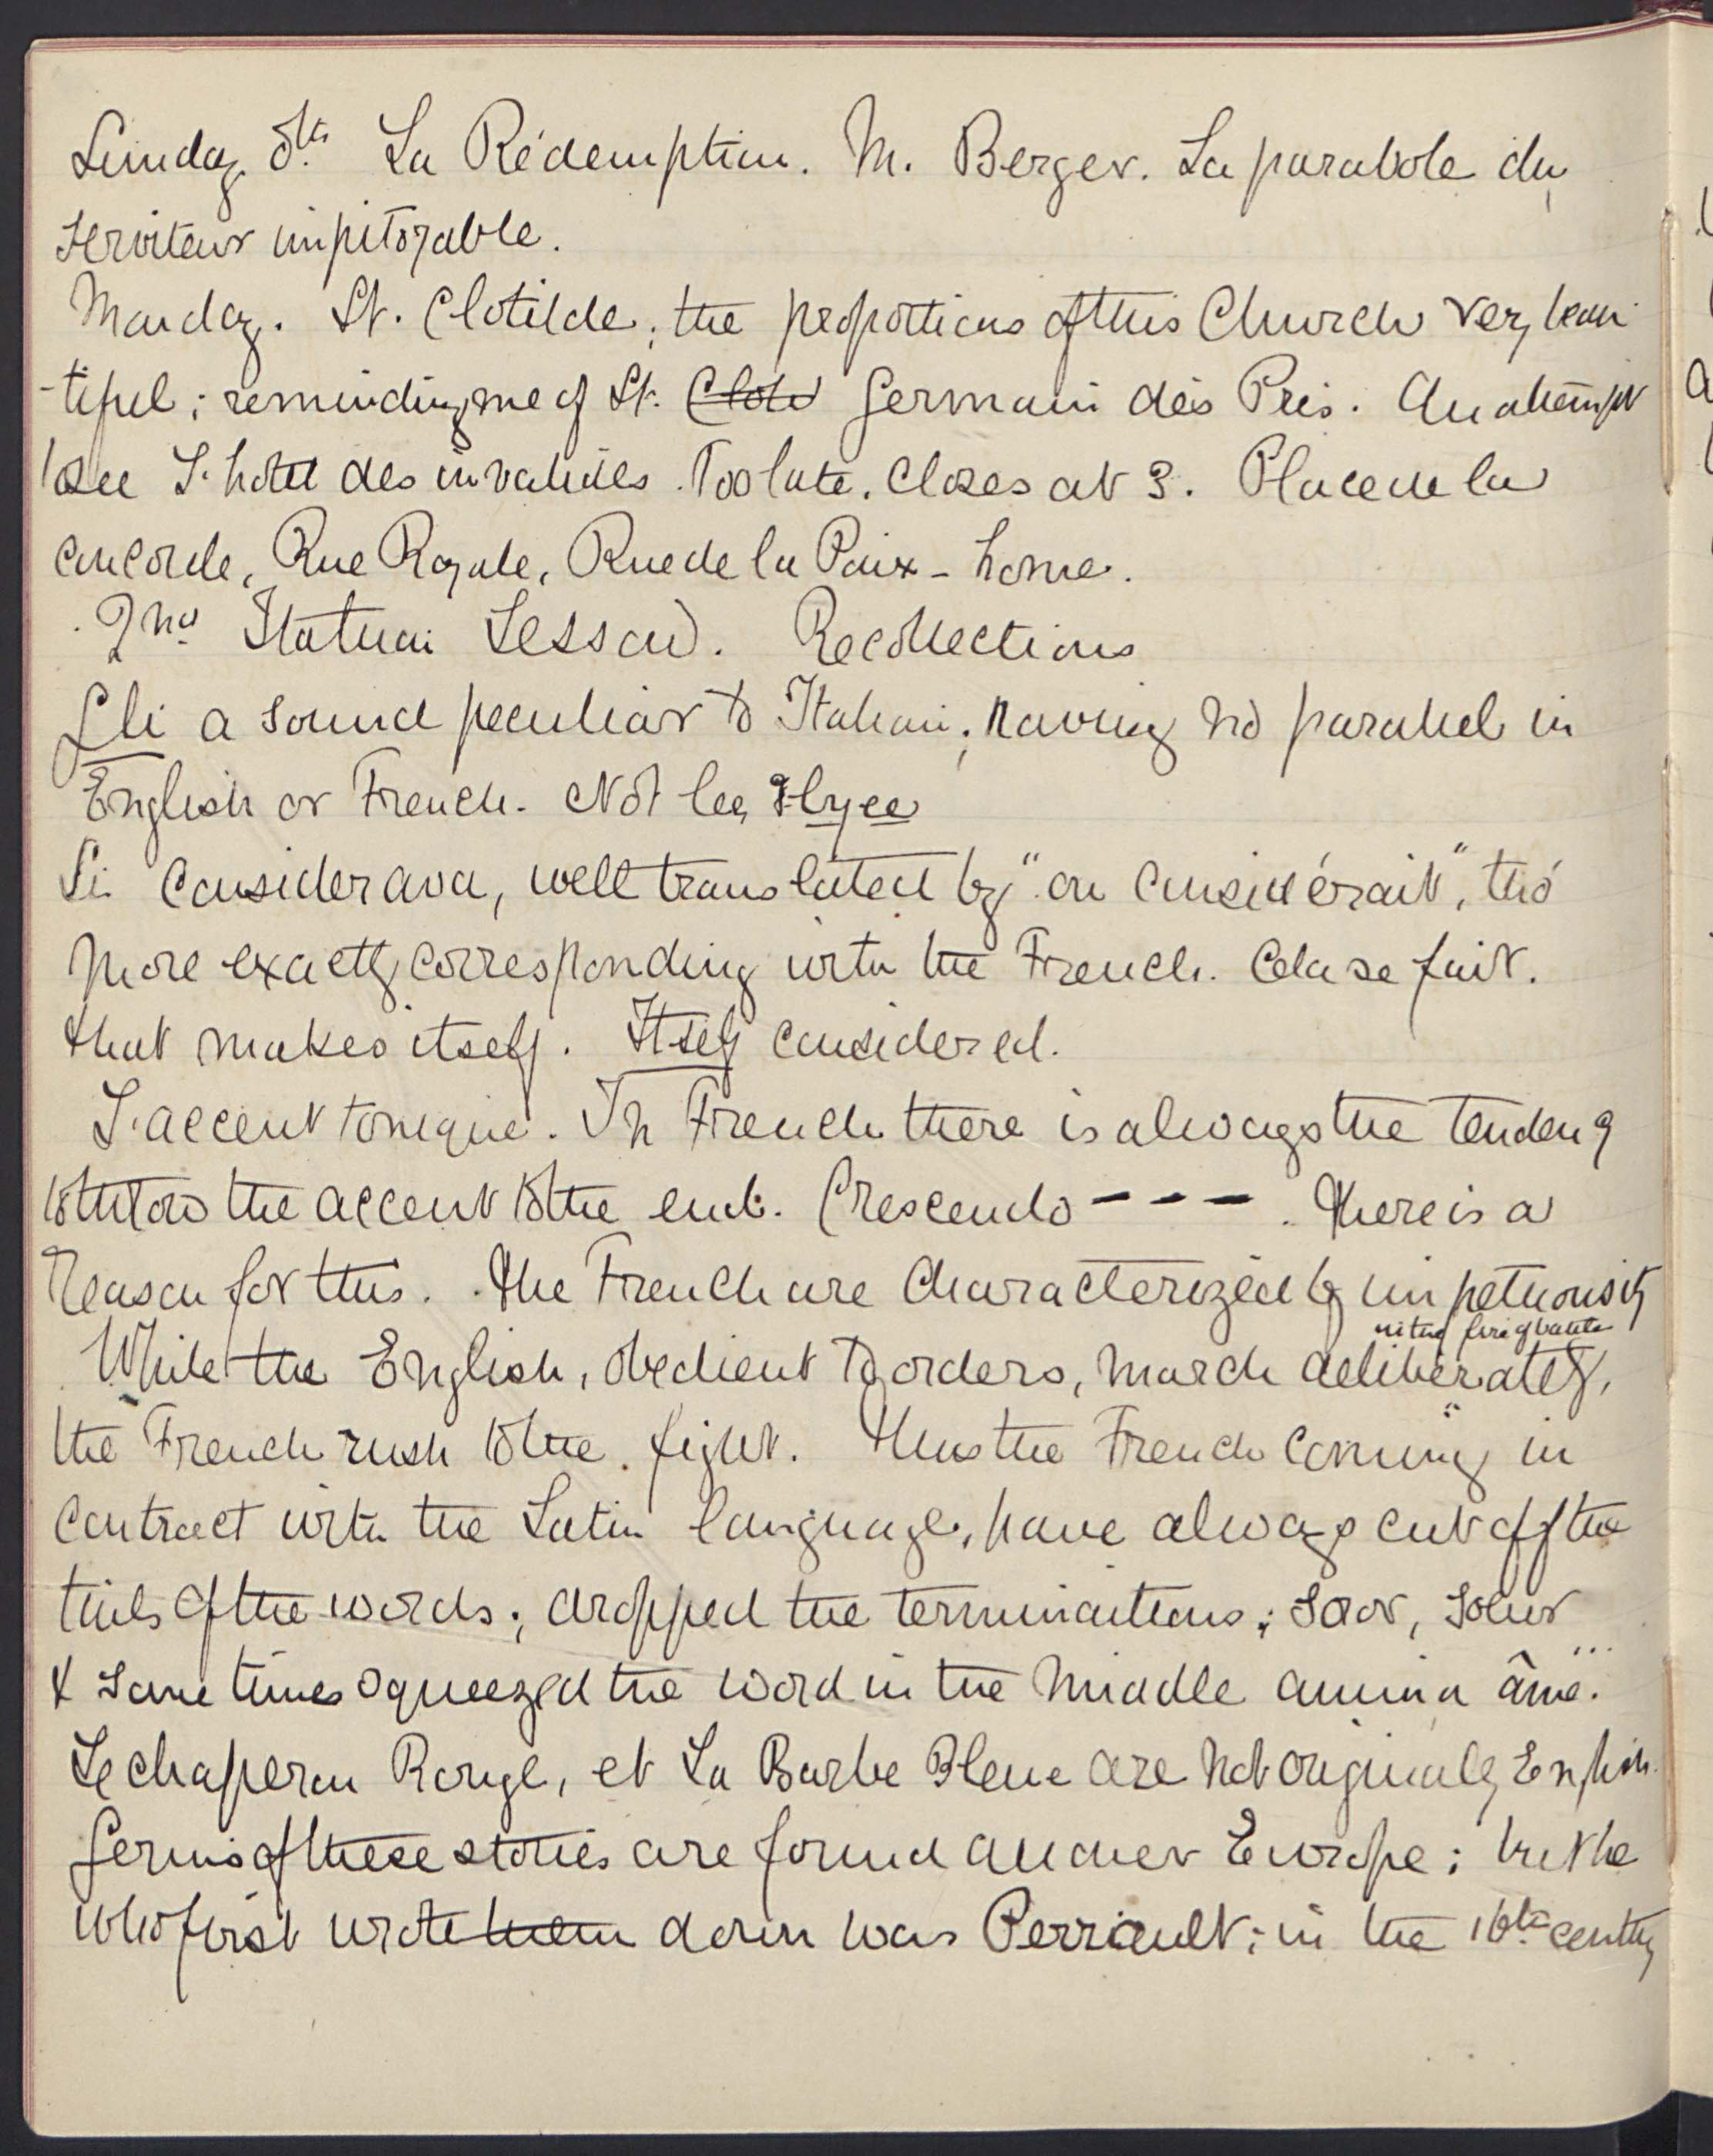 Sunday 8th La Rédemption. M. Berger. La parabole du
serviteur impitoyable.
Monday. St. Clotilde, the proportions of this Church very beau-
-tiful; reminding me of St. Clotd Germain des Prés. An attempt
to see L'hotel des invalides. Too late. Closes at 3. Place de la
concorde, Rue Royale, Rue de la Paix - home.
2nd Italian Lesson. Recollections
Gli a sound peculiar to Italian; having no parallel in
English or French. Not lee, lyee
Si considerava, well translated by "on considérait", tho'
more exactly corresponding with the French. Cela se fait.
that makes itself. Itself considered.
L'accent tonique. In French there is always the tendency
to throw the accent to the end. Crescendo - - - . There is a
reason for this. The French are characterized by impetuosity
in the fire of battle
While the English, obedient to orders, march deliberately,
the French rush to the fight. Thus the French coming in
contract with the Latin language, have always cut off the
tails of the words; dropped the terminations; soror, soeur
& sometimes squeezed the word in the middle anima âme.
Le chaperon Rouge, et La Barbe Bleue are not originally English.
Germs of these stories are found all over Europe; but he
who first wrote them down was Perrault; in the 16th century